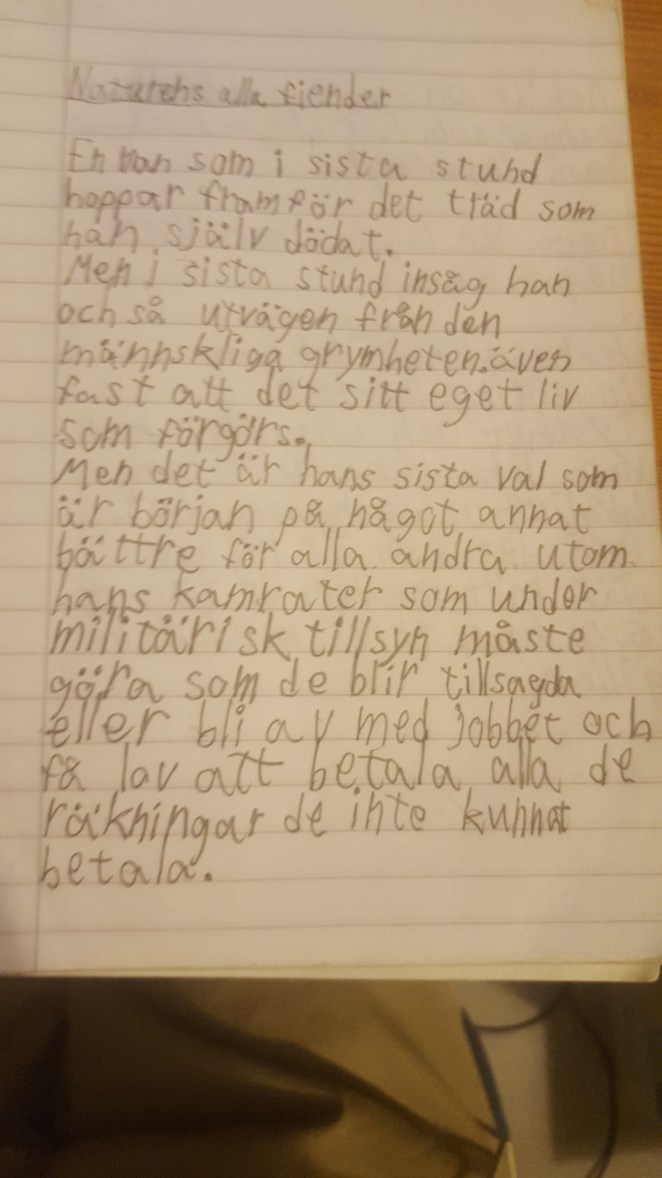 Naturens alla fiender
En man som i sista stund
hoppar framför det träd som
han själv dödat.
Men i sista stund insåg han
och så utvägen från den
männskliga grymheten.även
fast att det sitt eget liv
som förgörs.
Men det är hans sista val som
är början på något annat
bättre för alla andra utom
hans kamrater som under
militärisk tillsyn måste
göra som de blir tillsagda
eller bli av med jobbet och
få lov att betala alla de
räkningar de inte kunnat
betala.